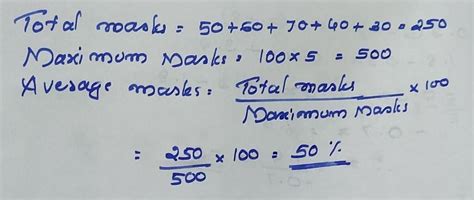 Total marks = 50+60+70+40+30 = 250
Maximum Marks = 100×5 = 500
Average marks = Total marks / Maximum Marks ×100
= 250 / 500 × 100 = 50 %